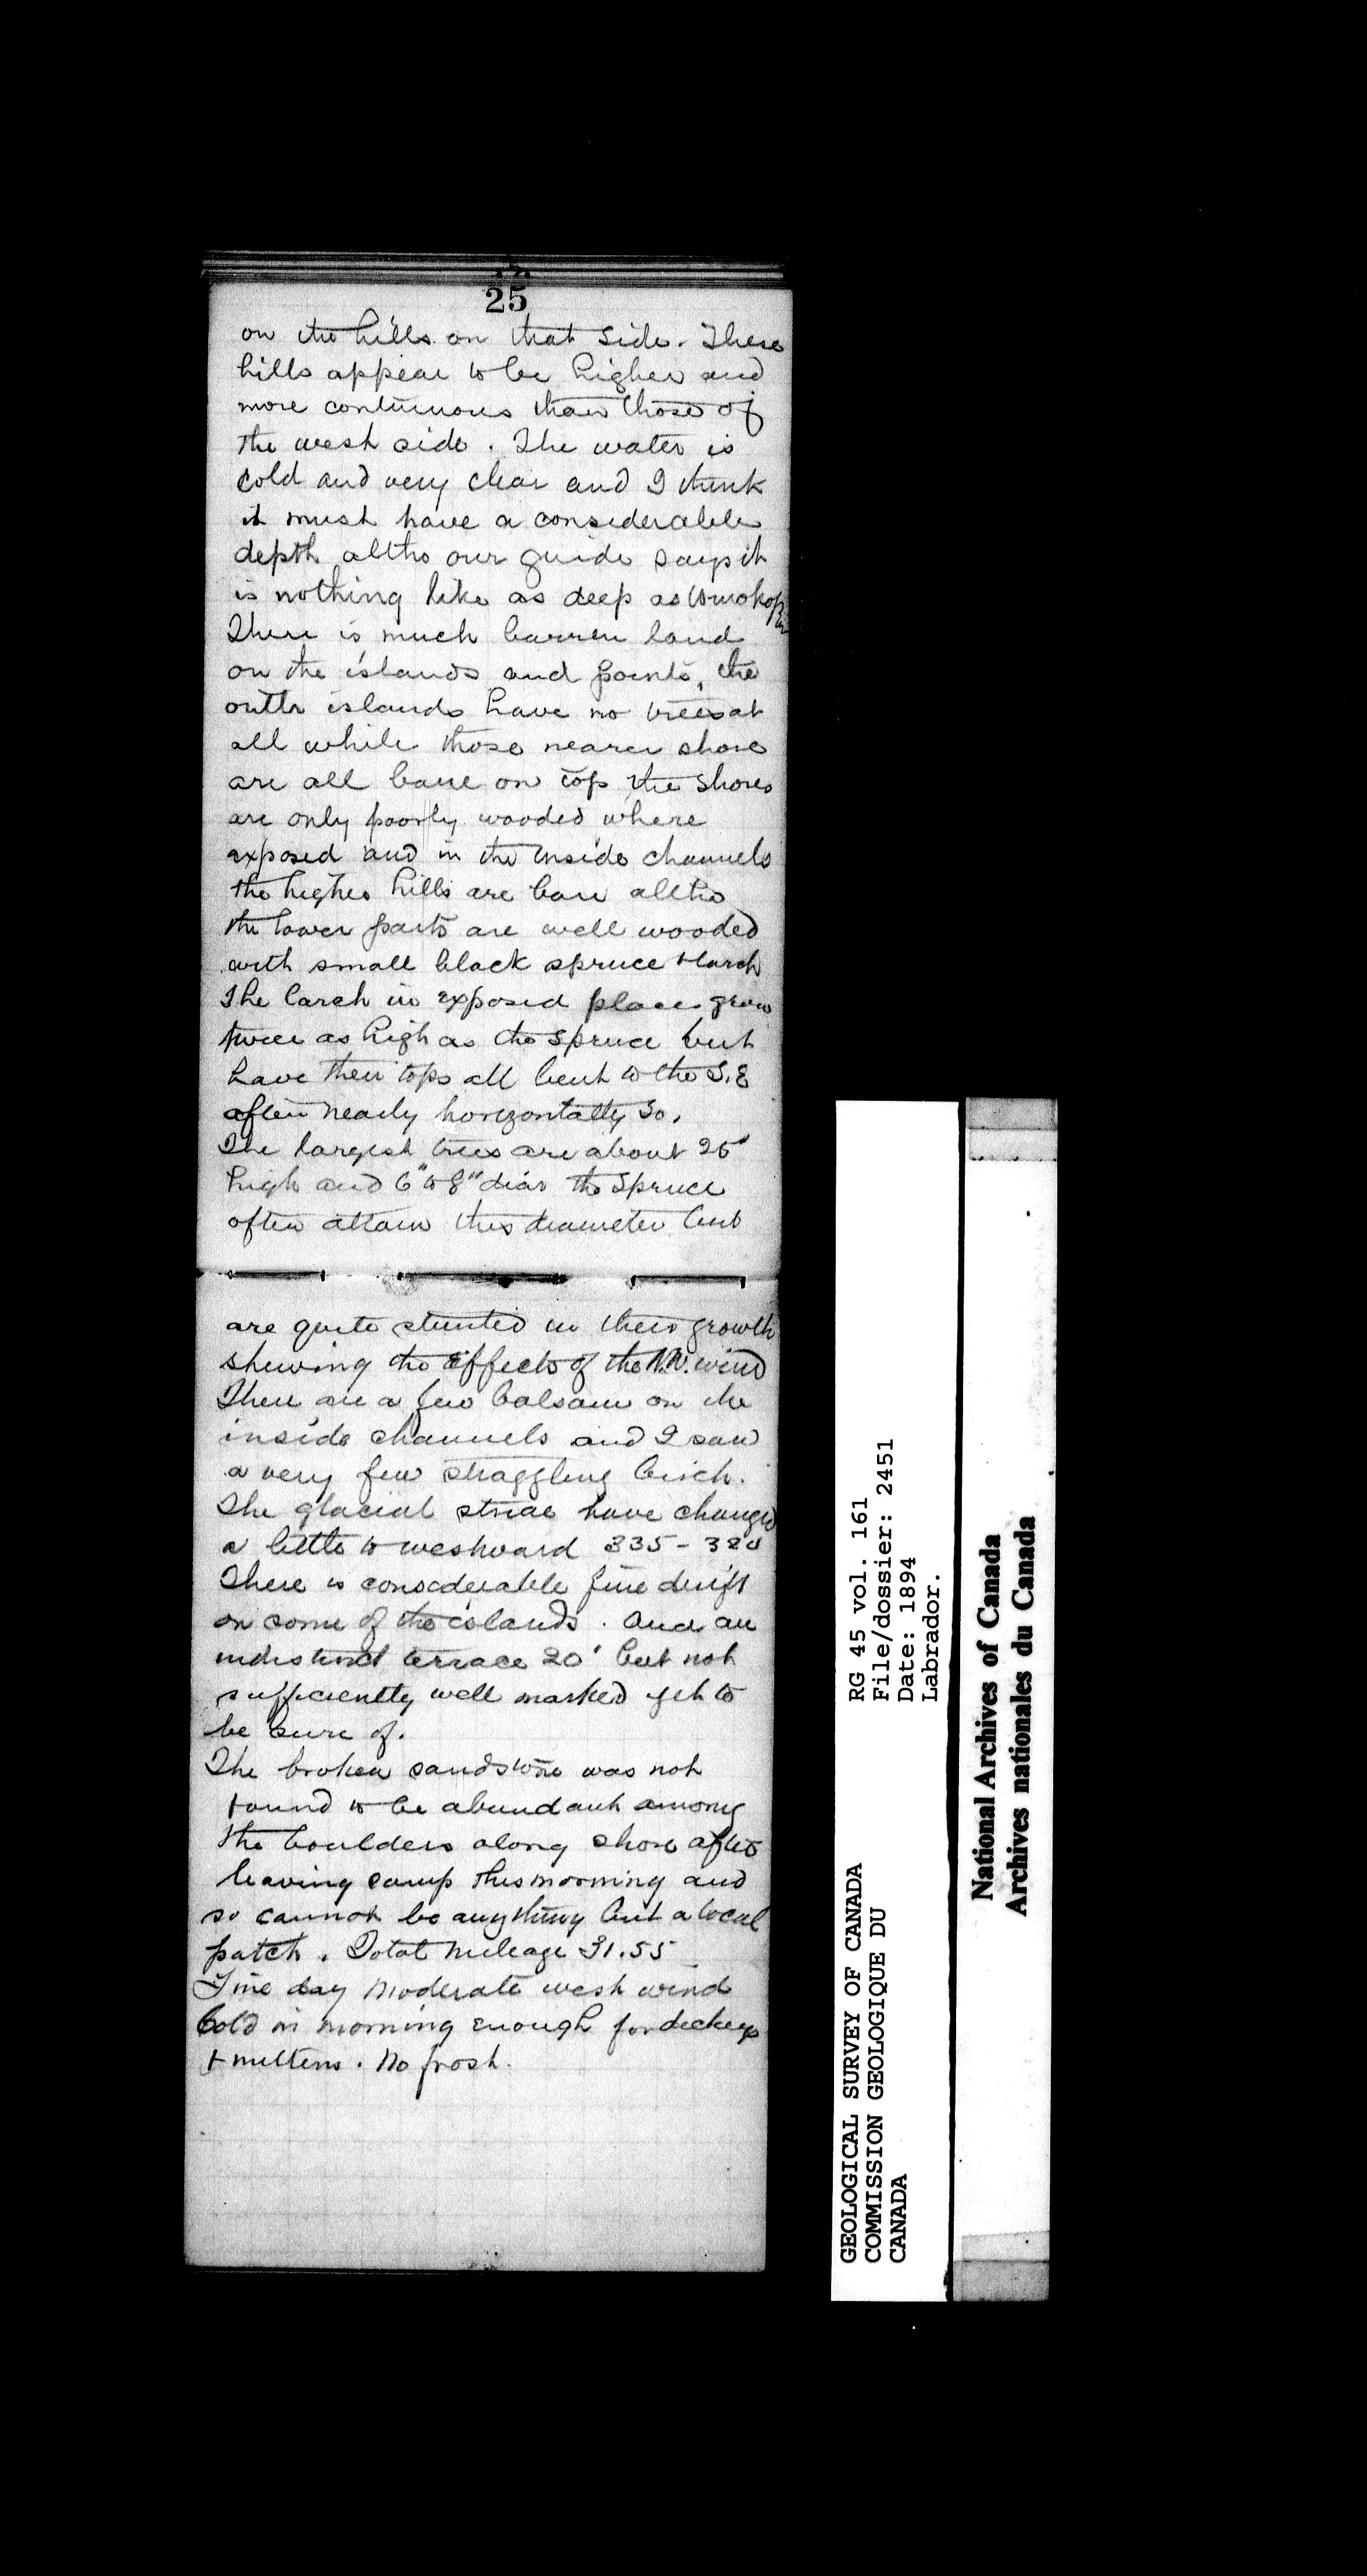 25
on the hills on that side. These
hills appear to be higher and
more continuous than those of
the west side. The water is
cold and very clear and I think
it must have a considerable
depth altho our guide says it
is nothing like as deep as
There is much barren land
on the islands and points, the
outer islands have no trees at
all while those nearer shore
are all bare on top the shores
are only poorly wooded where
exposed and in the inside channels
the higher hills are bare altho
the lower parts are well wooded
with small black spruce & larch
The larch in exposed places grow
twice as high as the spruce but
have their tops all bent to the S.E
often nearly horizontally so.
The largest trees are about 25'
high and 6" to 8" diar the spruce
often attain this diameter but
are quite stunted in their growth
shewing the effects of the N.W. wind
There are a few balsam on the
inside channels and I saw
a very few straggling birch.
The glacial striae have changed
a little to westward 335 - 320
There is considerable fine drift
on some of the islands. and an
indistinct terrace 20' but not
sufficiently well marked yet to
be sure of.
The broken sandstone was not
found to be abundant among
the boulders along shore after
leaving camp this morning and
so cannot be anything but a local
patch. Total mileage 31.55
Fine day moderate west wind
Cold in morning enough for
& mittens. No frost.
GEOLOGICAL SURVEY OF CANADA
COMMISSION GEOLOGIQUE DU
CANADA
RG 45 vol. 161
File/dossier: 2451
Date: 1894
Labrador.
National Archives of Canada
Archives nationales du Canada